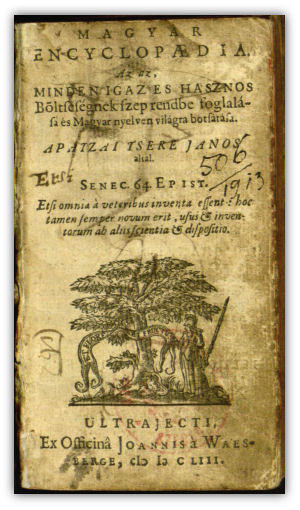 MAGYAR
ENCYCLOPÆDIA.
Az az,
MINDEN IGAZ ES HASZNOS
Bőltseségnek szep rendbe foglalá-
sa és Magyar nyelven világra botsátása.
APATZAI TSERE JANOS
által.
506
1913
Etsi
SENEC. 64. EPIST.
Etsi omnia à veteribus inventa essent: hoc
tamen semper novum erit, usus & inven-
torum ab aliis scientia & dispositio.
ULTRAJECTI,
Ex Officinâ JOANNIS à WAES-
BERGE, cIɔ Iɔ C LIII.